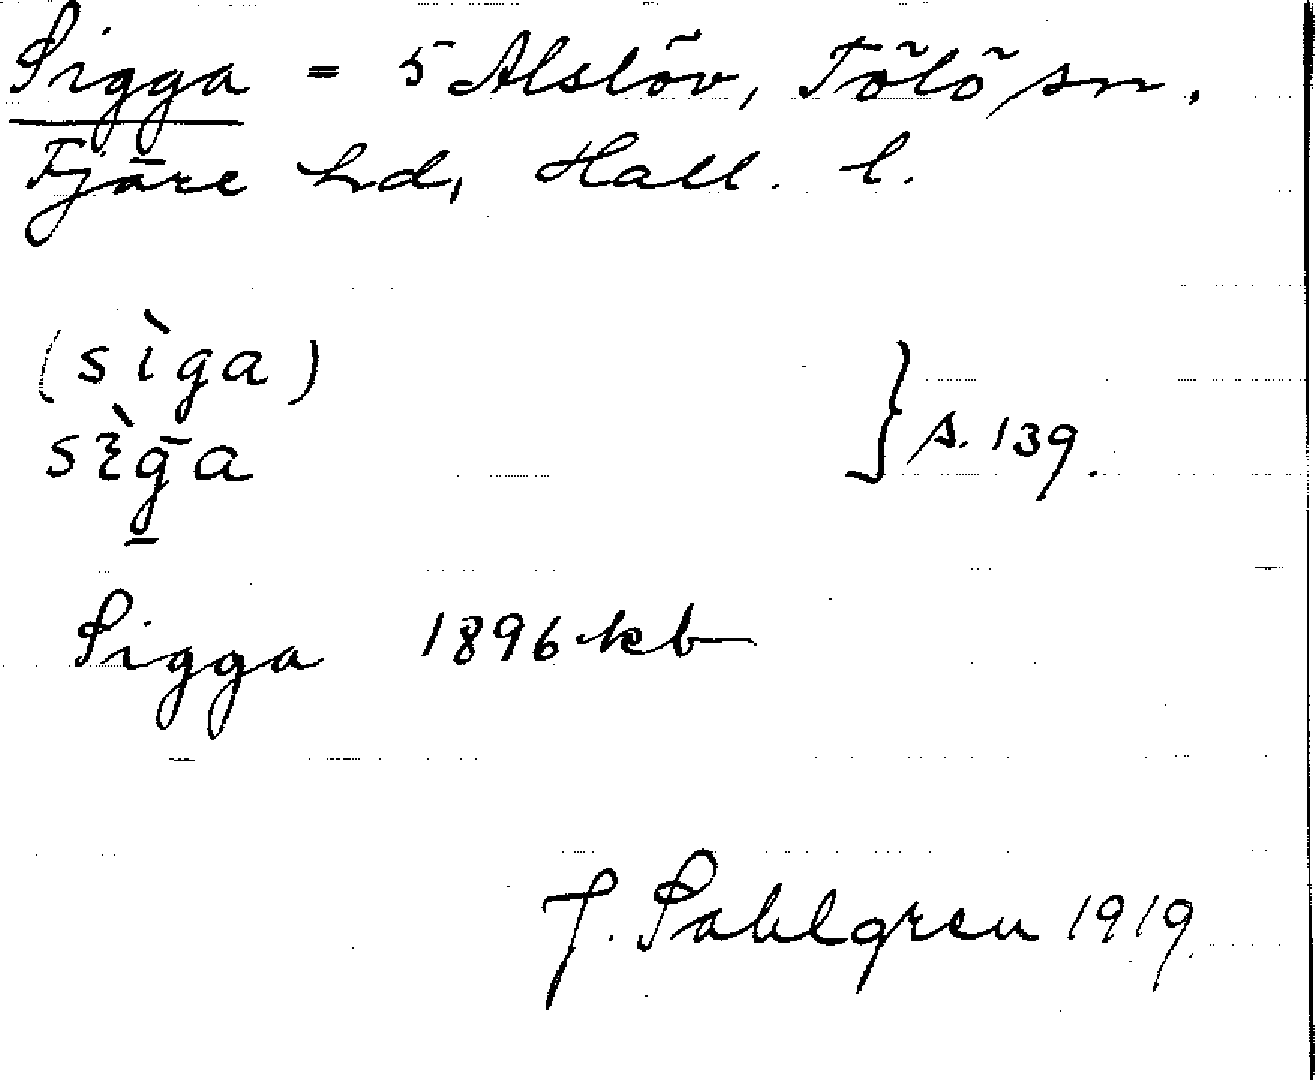 Sigga = 5 Alslöv, Tölö sn.
Fjäre hd, Hall. l.
(sìga)
sìḡa } s. 139.
Sigga 1896 kb
J. Sahlgren 1919